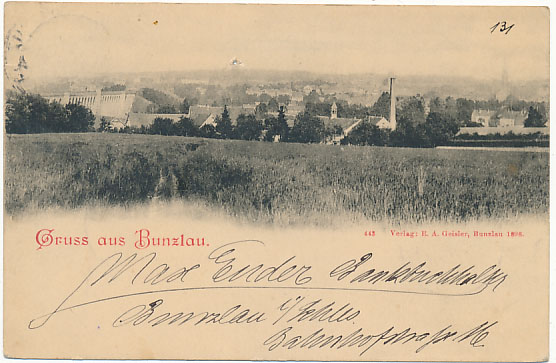 131
Gruss aus Bunzlau.
443 Verlag: R. A. Geisler, Bunzlau 1898.
Max Ender Bankbuchhalter
Bunzlau i/Schles.
Bahnhofstraße 16